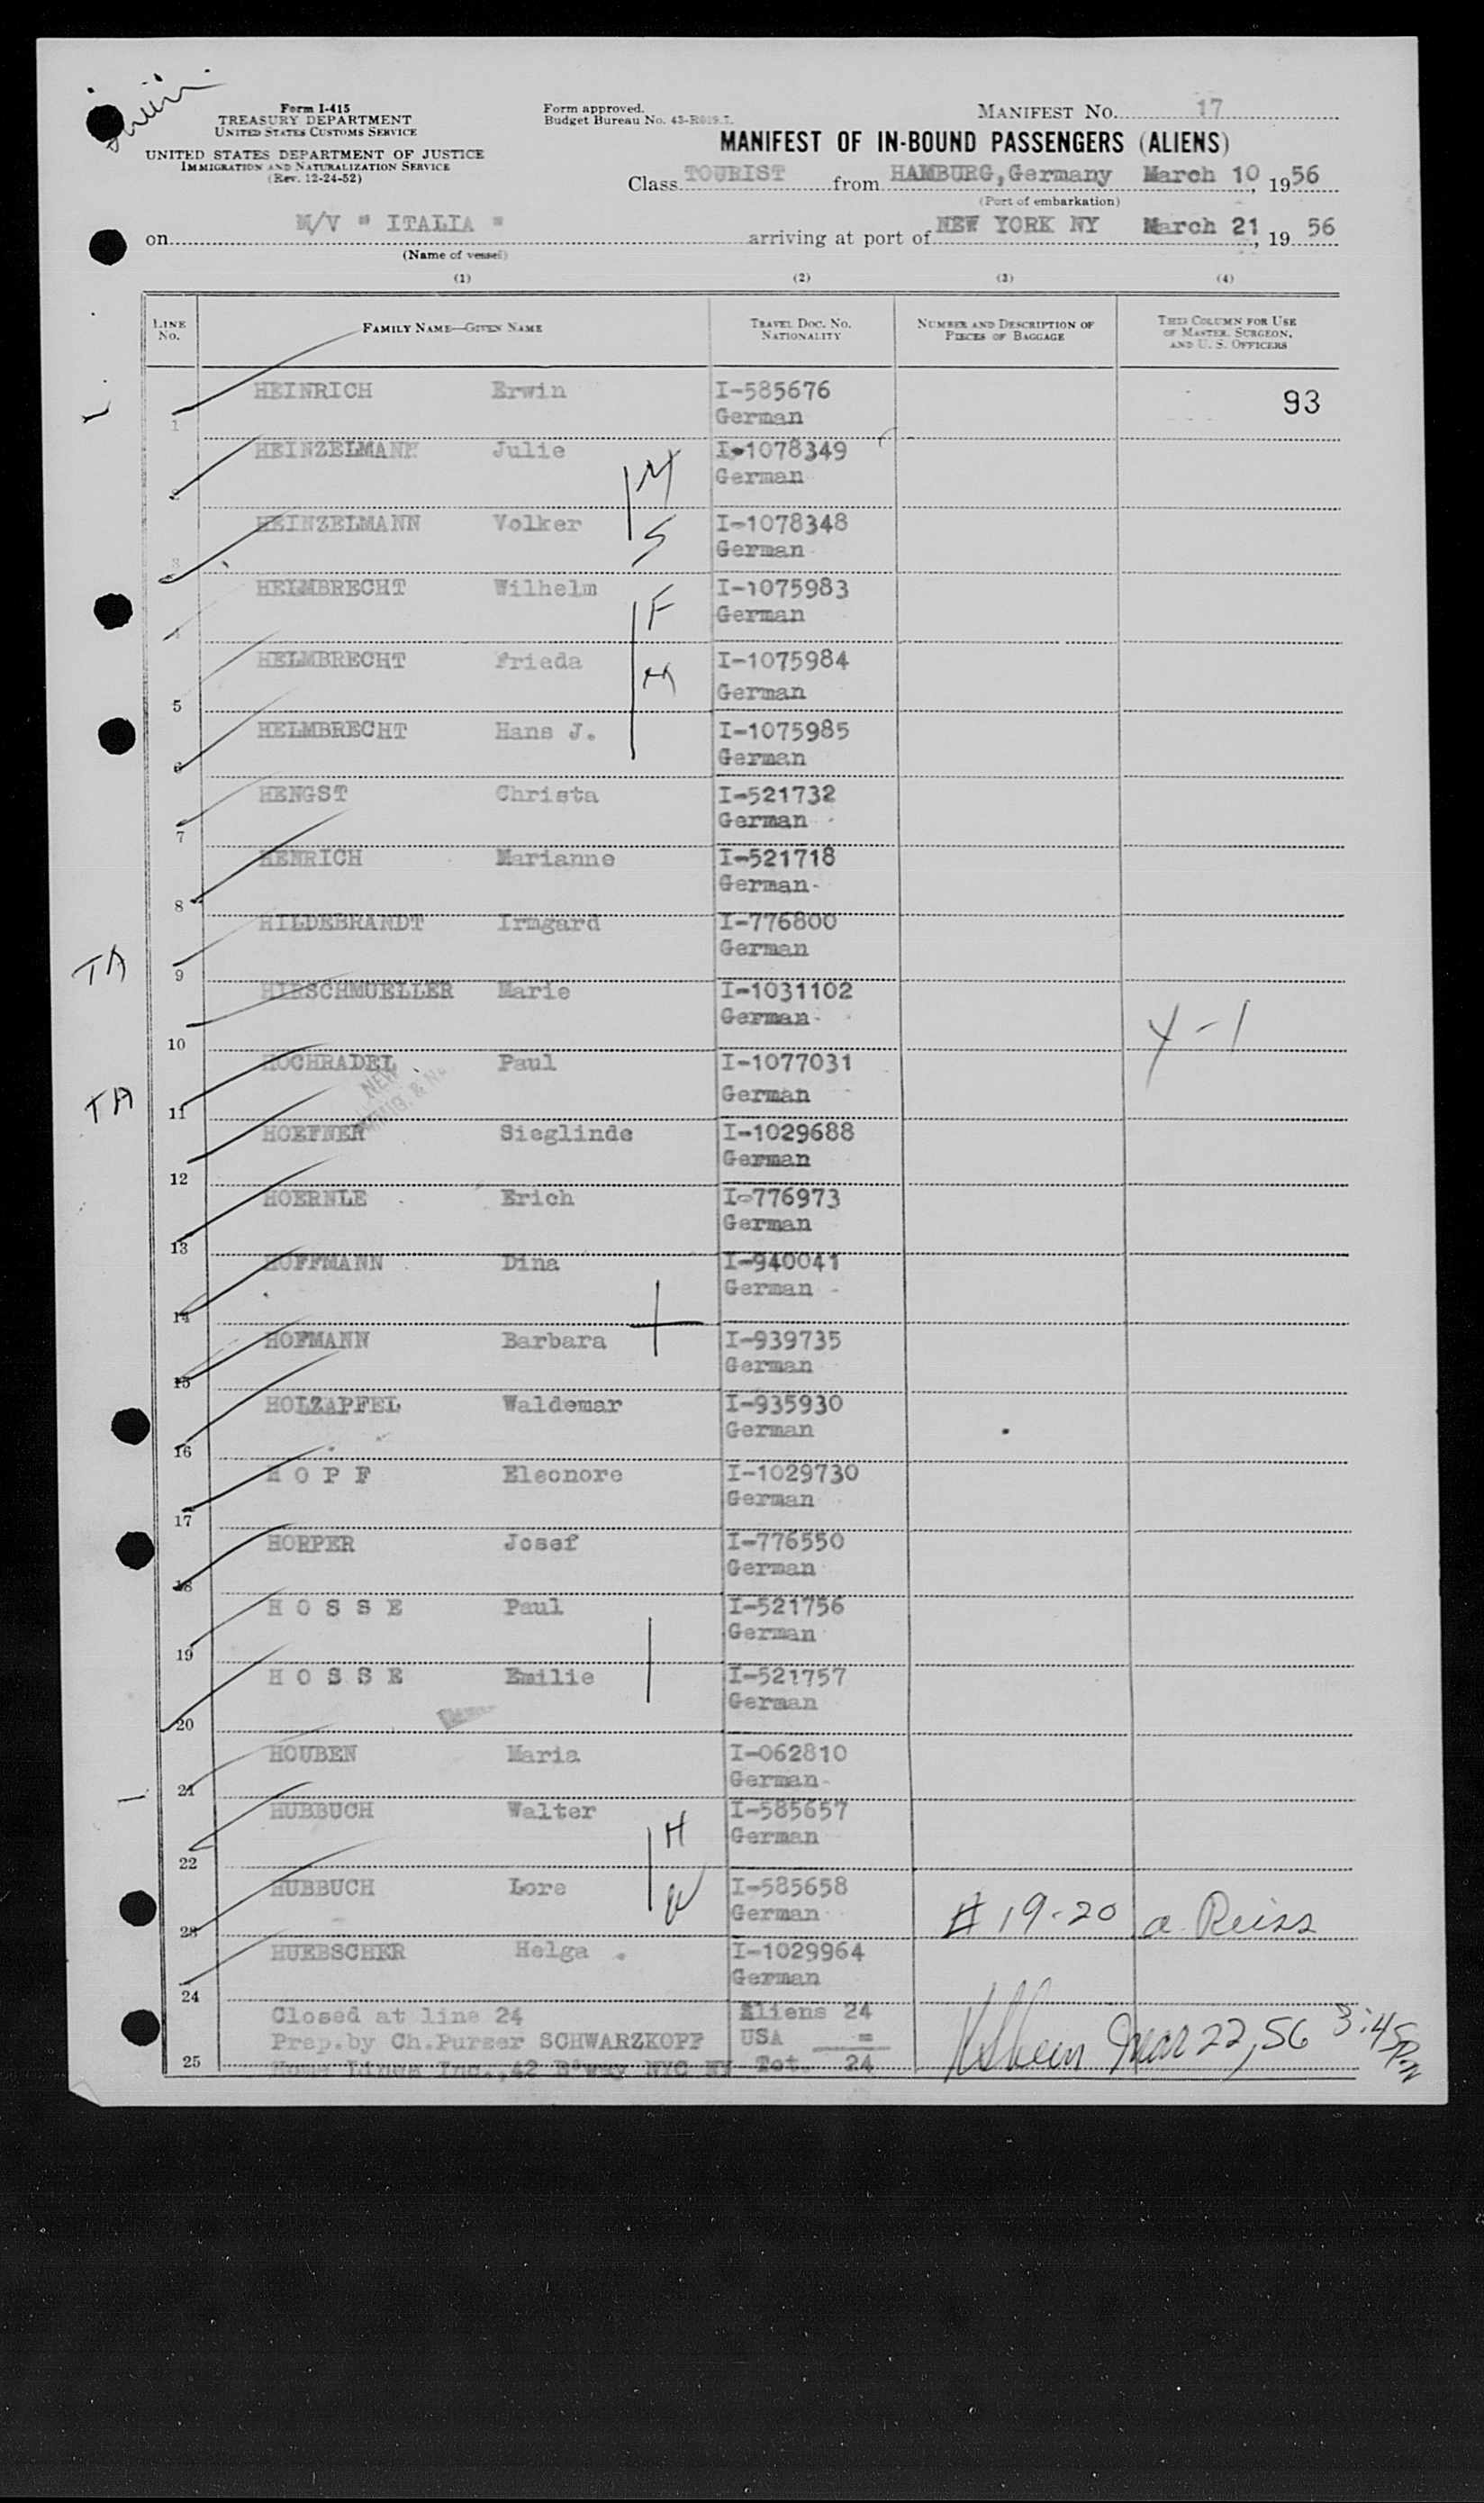 Form I-415
TREASURY DEPARTMENT
UNITED STATES CUSTOMS SERVICE
UNITED STATES DEPARTMENT OF JUSTICE
IMMIGRATION AND NATURALIZATION SERVICE
(Rev. 12-24-52)
Form approved.
Budget Bureau No. 43-R019.7.
MANIFEST NO. 17
MANIFEST OF IN-BOUND PASSENGERS (ALIENS)
Class TOURIST from HAMBURG, Germany March 10, 1956
(Port of embarkation)
on M/V " ITALIA " arriving at port of NEW YORK NY March 21, 1956
(Name of vessel)
(1) (2) (3) (4)
LINE NO. FAMILY NAME—GIVEN NAME TRAVEL DOC. NO. NATIONALITY NUMBER AND DESCRIPTION OF PIECES OF BAGGAGE THIS COLUMN FOR USE OF MASTER, SURGEON, AND U. S. OFFICERS
1 HEINRICH Erwin I-585676 93
German
2 HEINZELMANN Julie M I-1078349
German
3 HEINZELMANN Volker S I-1078348
German
4 HELMBRECHT Wilhelm F I-1075983
German
5 HELMBRECHT Frieda M I-1075984
German
6 HELMBRECHT Hans J. I-1075985
German
7 HENGST Christa I-521732
German
8 HENRICH Marianne I-521718
German
9 HILDEBRANDT Irmgard I-776800
German
TA
10 HIRSCHMUELLER Marie I-1031102
German
Y-1
11 HOCHRADEL Paul I-1077031
German
TA
12 HOEFNER Sieglinde I-1029688
German
13 HOERNLE Erich I-776973
German
14 HOFFMANN Dina I-940041
German
15 HOFMANN Barbara I-939735
German
16 HOLZAPFEL Waldemar I-935930
German
17 H O P F Eleonore I-1029730
German
18 HORPER Josef I-776550
German
19 H O S S E Paul I-521756
German
20 H O S S E Emilie I-521757
German
21 HOUBEN Maria I-062810
German
22 HUBBUCH Walter H I-585657
German
23 HUBBUCH Lore W I-585658
German # 19-20 a. Reiss
24 HUEBSCHER Helga I-1029964
German
Closed at line 24 Aliens 24
Prep.by Ch.Purser SCHWARZKOPF USA =
Mar 22, 56 3:45 PM
25 Home Lines Inc.,42 B'way NYC NY Tot. 24